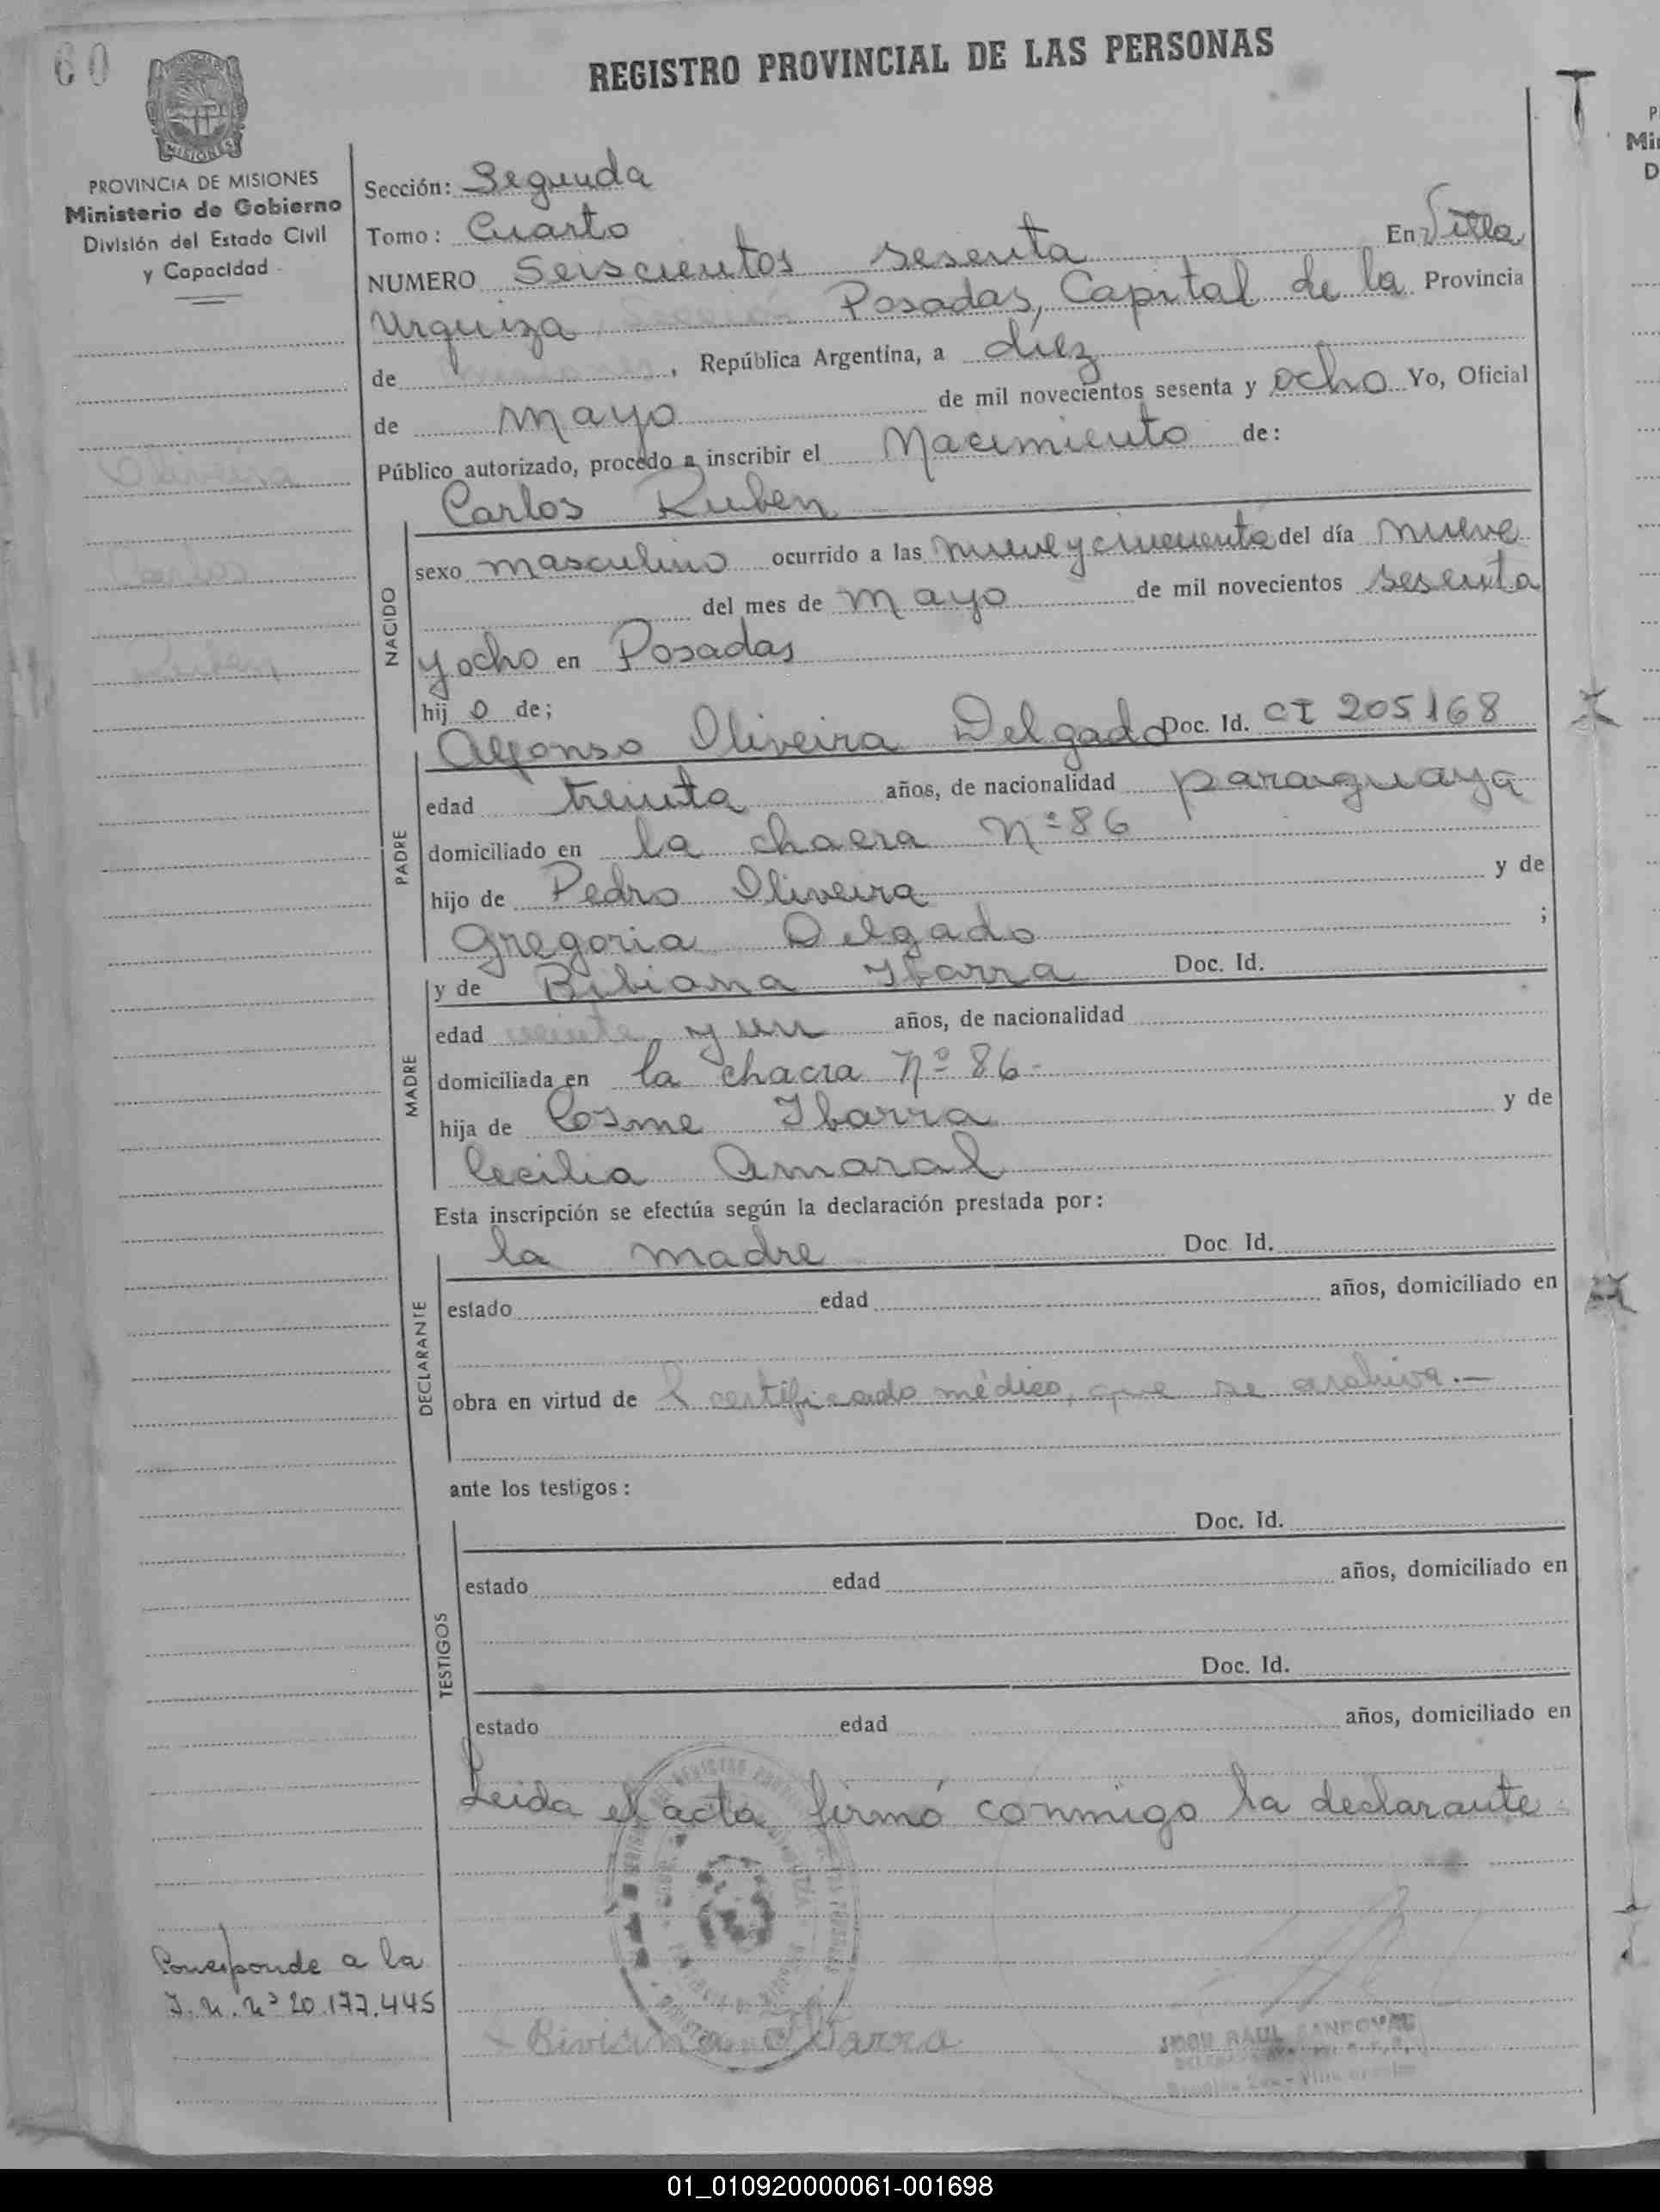 60
REGISTRO PROVINCIAL DE LAS PERSONAS
MISIONES
PROVINCIA DE MISIONES
Ministerio de Gobierno
División del Estado Civil
y Capacidad
Sección: Segunda
Tomo: Cuarto
NUMERO Seiscientos sesenta En Villa
Urquiza, Sección Posadas, Capital de la Provincia
de Misiones, República Argentina, a diez
de mayo de mil novecientos sesenta y ocho Yo, Oficial
Público autorizado, procedo a inscribir el Nacimiento de:
Oliveira
Carlos
Ruben
Carlos Ruben
NACIDO
sexo masculino ocurrido a las nueve y cincuenta del día nueve
del mes de mayo de mil novecientos sesenta
y ocho en Posadas
hij o de;
PADRE
Alfonso Oliveira Delgado Doc. Id. CI 205168
edad treinta años, de nacionalidad paraguaya
domiciliado en la chacra Nº 86
hijo de Pedro Oliveira y de
Gregoria Delgado ;
MADRE
y de Bibiana Ibarra Doc. Id.
edad veinte y un años, de nacionalidad
domiciliada en la chacra Nº 86-
hija de Cosme Ibarra y de
Cecilia Amaral
Esta inscripción se efectúa según la declaración prestada por:
DECLARANTE
la madre Doc. Id.
estado edad años, domiciliado en
obra en virtud de l certificado médico, que se archiva.-
ante los testigos:
TESTIGOS
Doc. Id.
estado edad años, domiciliado en
Doc. Id.
estado edad años, domiciliado en
Leida el acta firmó conmigo la declarante.
Corresponde a la
I. N. Nº 20.177.445
Ibarra
JOSE RAUL SANDOVAL
01_010920000061-001698